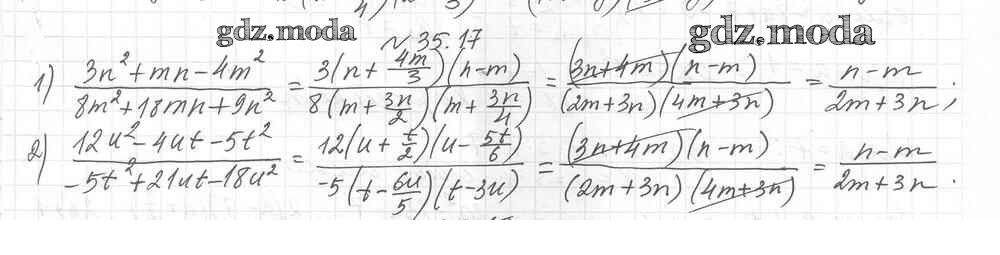 gdz.moda
gdz.moda
№ 35.17
1) (3n² + mn - 4m²)/(8m² + 18mn + 9n²) = 3(n + 4m/3)(n - m)/8(m + 3n/2)(m + 3n/4) = (3n + 4m)(n - m)/(2m + 3n)(4m + 3n) = (n - m)/(2m + 3n);
2) (12u² - 4ut - 5t²)/(-5t² + 21ut - 18u²) = 12(u + t/2)(u - 5t/6)/-5(t - 6u/5)(t - 3u) = (3n + 4m)(n - m)/(2m + 3n)(4m + 3n) = (n - m)/(2m + 3n).